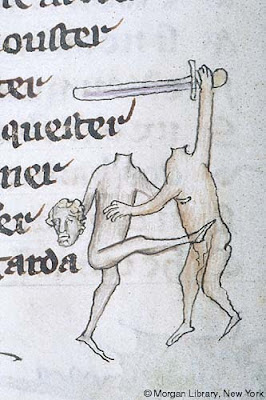 ouster
ter
quester
ner
arda
© Morgan Library, New York